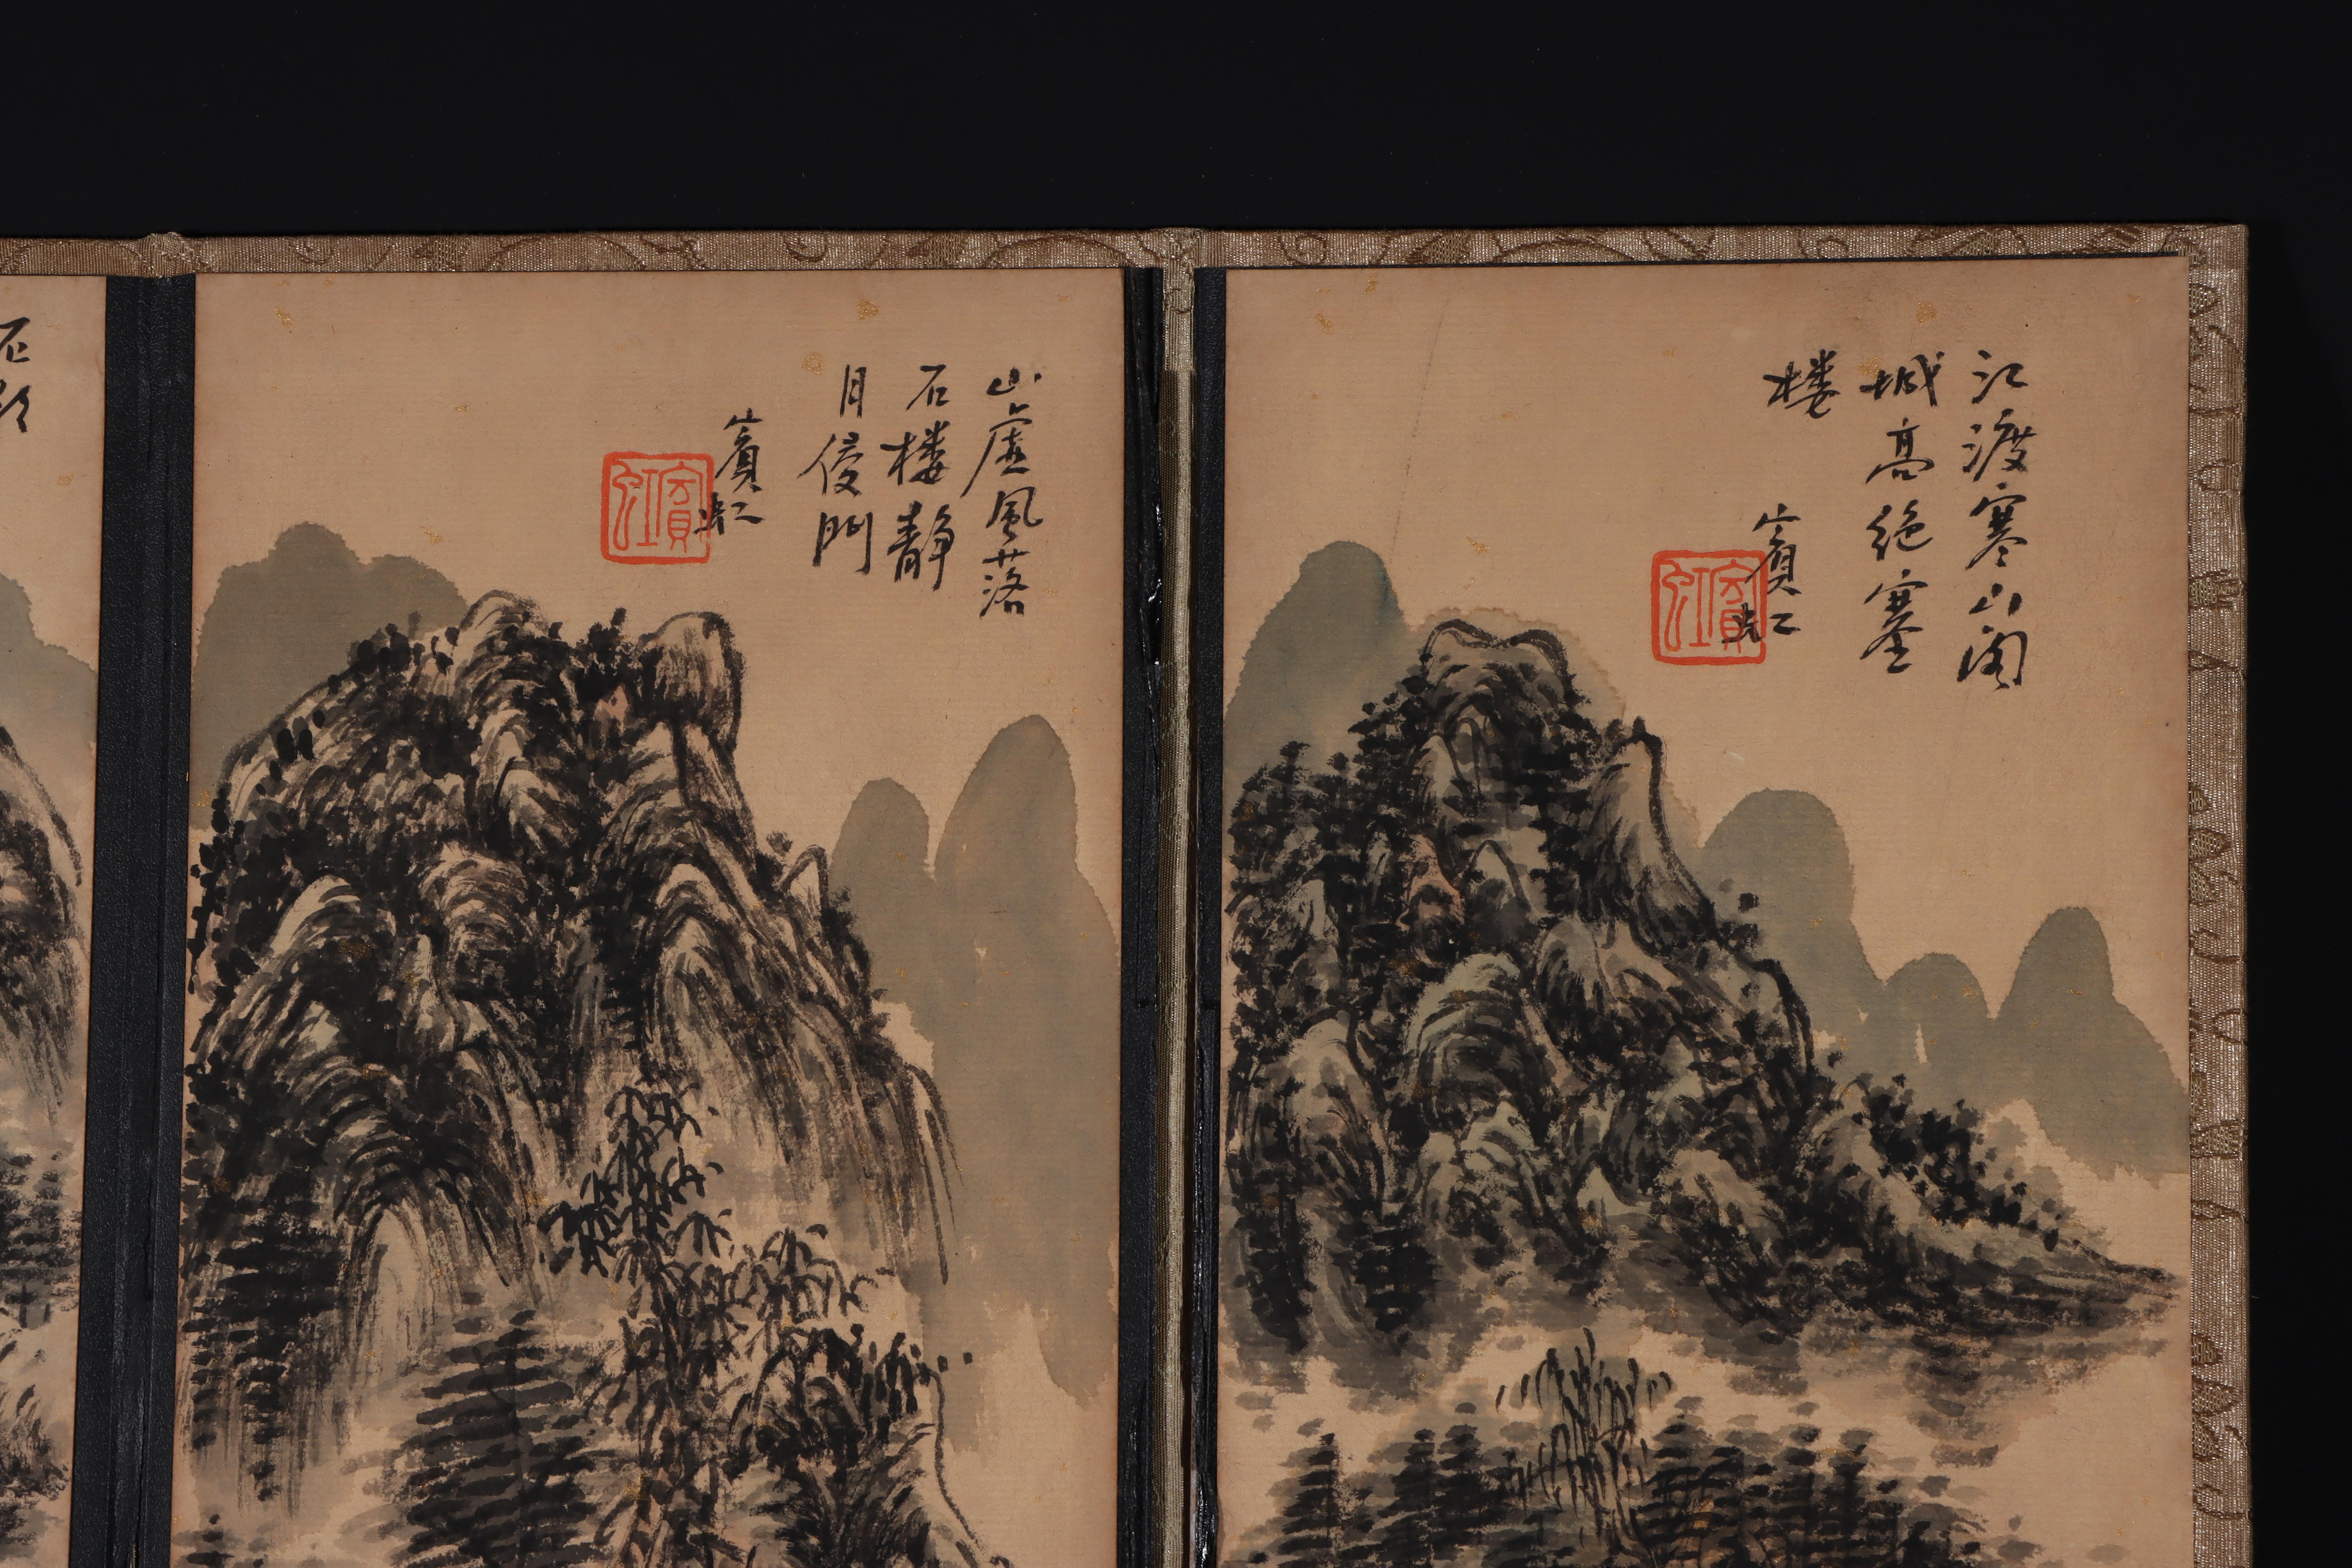 江渡寒山閣
城高絶塞
楼
賓虹
賓虹
山虚風落
石楼静
月侵門
賓虹
賓虹
石